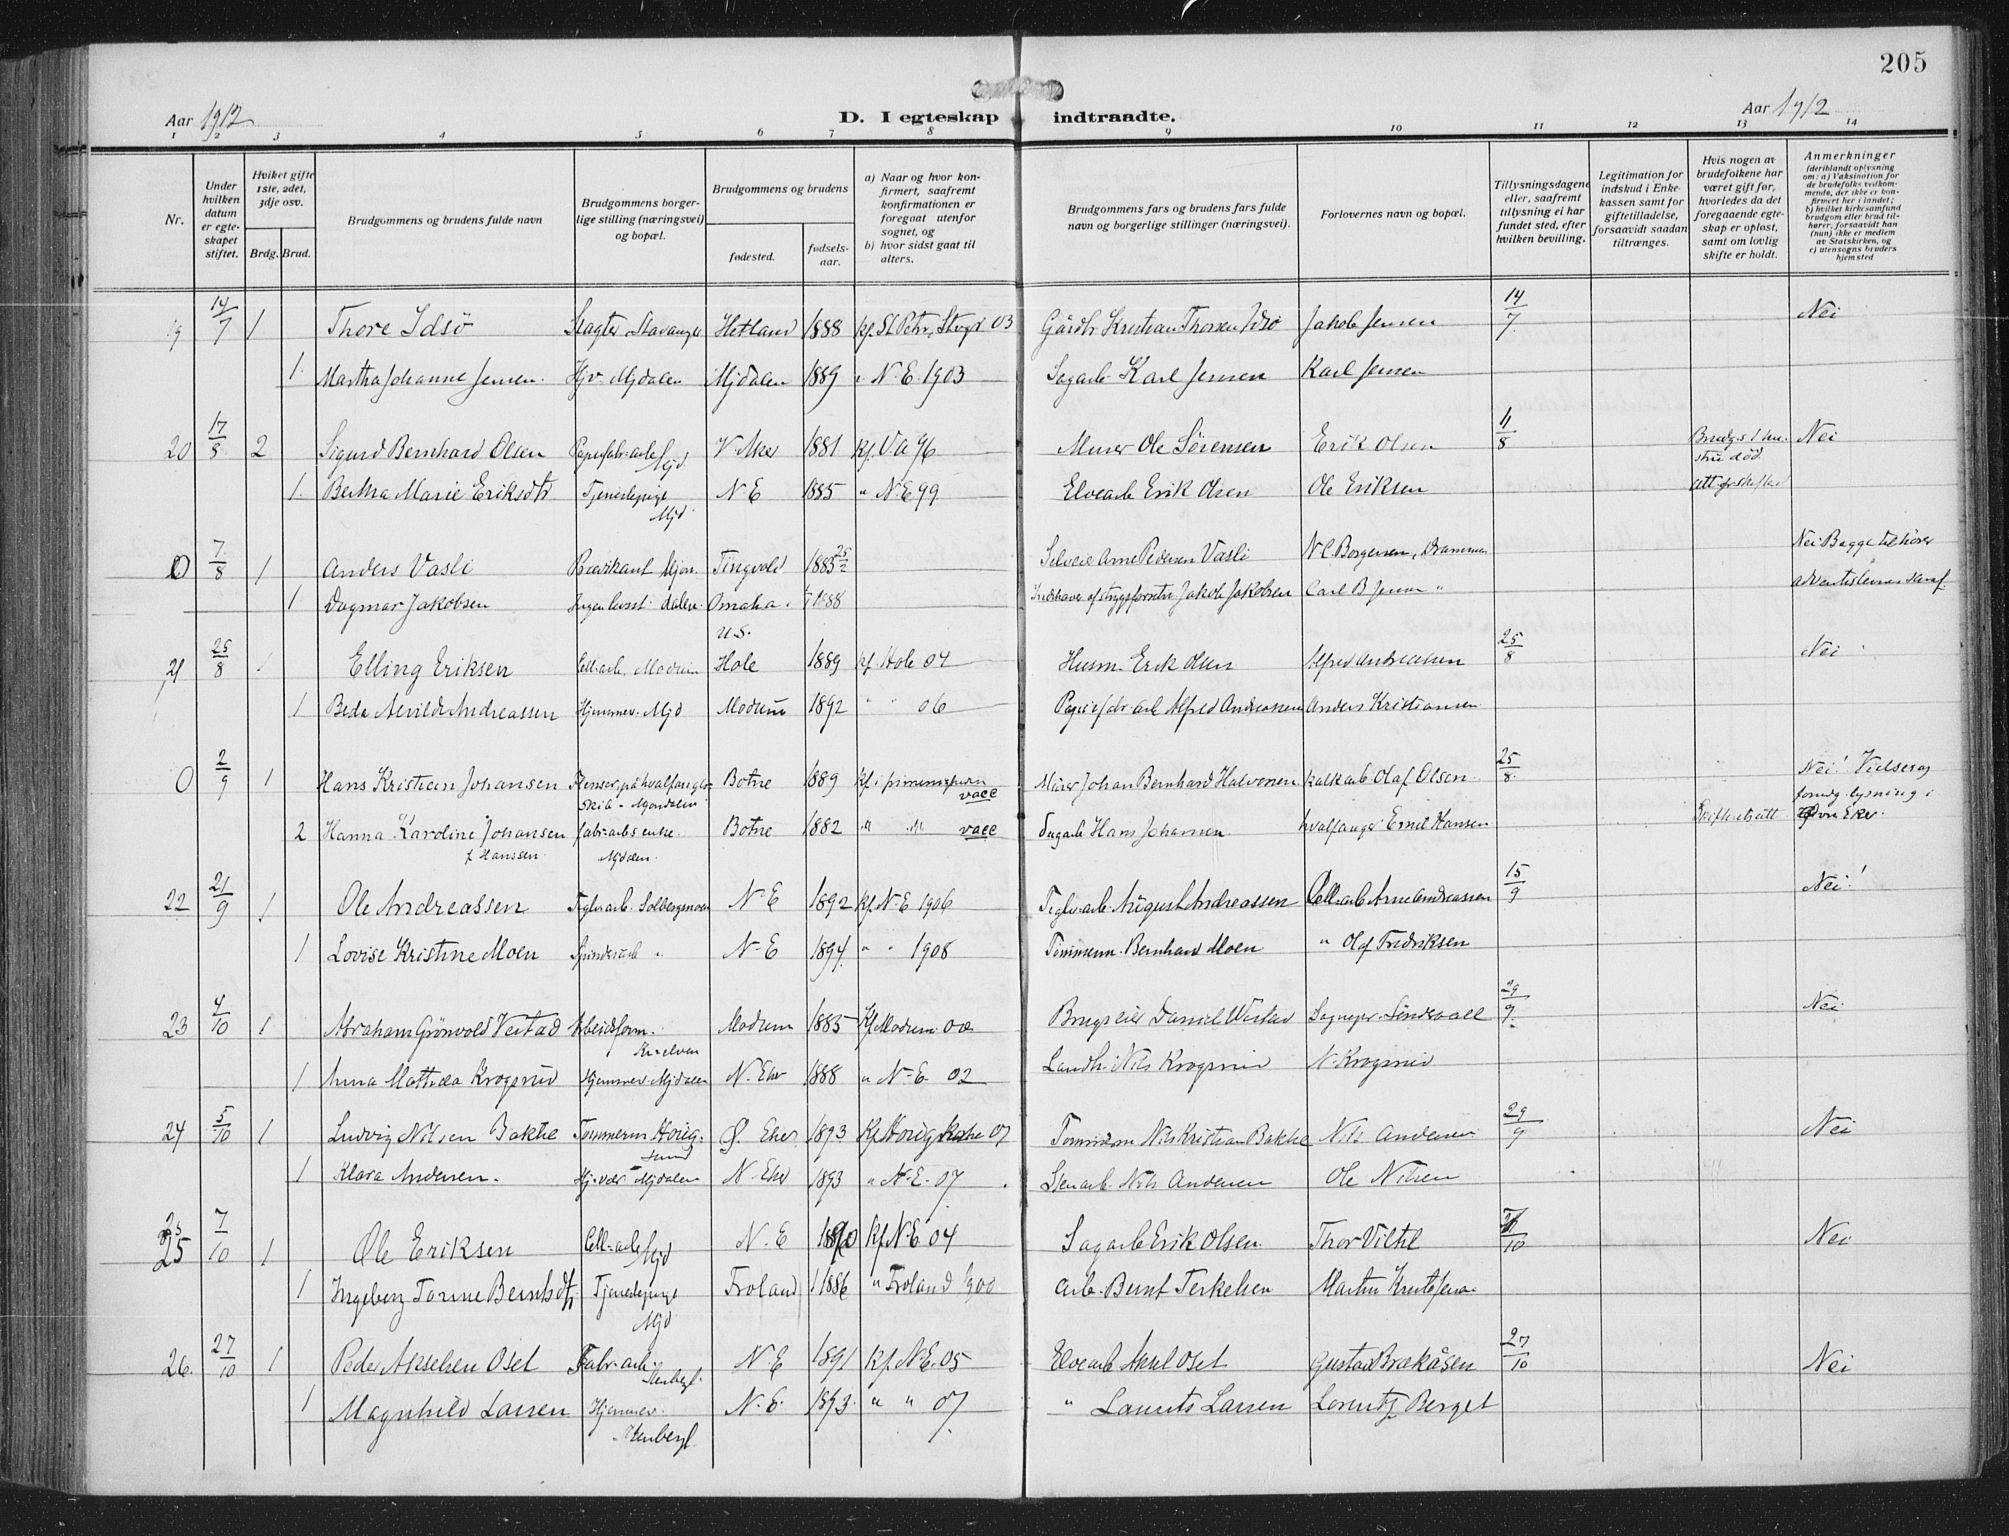 205
Aar 1912
D. I egteskap indtraadte.
Aar 1912
1 2 3 4 5 6 7 8 9 10 11 12 13 14
Nr.
Under hvilken datum er egte-skapet stiftet.
Hvilket gifte 1ste, 2det, 3dje osv.
Brdg. Brud.
Brudgommens og brudens fulde navn
Brudgommens borger-lige stilling (næringsvei) og bopæl.
Brudgommens og brudens
fødested.
fødsels-aar.
a) Naar og hvor kon-firmert, saafremt konfirmationen er foregaat utenfor sognet, og
b) hvor sidst gaat til alters.
Brudgommens fars og brudens fars fulde navn og borgerlige stillinger (næringsvei).
Forlovernes navn og bopæl.
Tillysningsdagene eller, saafremt tillysning ei har fundet sted, efter hvilken bevilling.
Legitimation for indskud i Enke-kassen samt for giftetilladelse, forsaavidt saadan tiltrænges.
Hvis nogen av brudefolkene har været gift før, hvorledes da det foregaaende egte-skap er opløst, samt om lovlig skifte er holdt.
Anmerkninger (deriblandt oplysning om: a) Vaksination for de brudefolks vedkom-mende, der ikke er kon-firmert her i landet; b) hvilket kirkesamfund brudgom eller brud til-hører, forsaavidt han (hun) ikke er medlem av Statskirken, og c) utensogns bruders hjemsted
19 14/7 1 Thore Idsø Slagter Stavanger Hetland 1888 kf. St. Petr. Stvgr 03 Gårdbr Kristian Thorsen Idsø Jakob Jensen 14/7 Nei
1 Martha Johanne Jensen. Hjv. Mjdalen Mjdalen 1889 " N. E. 1903 Sagarb. Karl Jensen Karl Jensen
20 17/8 2 Sigurd Bernhard Olsen Papirfabr.arb. Mjd. V. Aker 1881 kf. V. A 96 Murer Ole Sørensen Erik Olsen 11/8 Brudg.s 1 hustru død. Nei
1 Bertha Marie Eriksdtr Tjenestepige Mjd. N. E 1885 " N. E 99 Elvearb Erik Olsen Ole Eriksen
0 7/8 1 Anders Vasli Mjøn- Tingvold 1885 25/2 Arne Pedersen Vasli N. C. Borgersen, Drammen Nei Begge tilhører
1 Dagmar Jakobsen dalen Omaha U.S. 88 Jakob Jakobsen Carl B. Jensen " adventisternes samf.
21 25/8 1 Elling Eriksen Cell.arb. Modum Hole 1889 kf. Hole 04 Husm. Erik Olsen Alfred Andreassen 25/8 Nei
1 Beda Alvilde Andreassen Hjemmev. Mjd Modum 1892 " " 06 Papirfabr.arb Alfred Andreassen Anders Kristiansen
0 2/9 1 Hans Kristian Johansen på hvalfanger skib - Mjøndalen Botne 1889 kf. i vacc Murer Johan Bernhard Halvorsen kalkarb Olaf Olsen 25/8 Nei! Vielse og
2 Hanna Karoline Johansen f. Hanssen fabr.arbs enke. Mjdalen. Botne 1882 " " vacc Hans Johansen hvalfanger Emil Hansen Øvre Eker.
22 21/9 1 Ole Andreassen Teglv.arb. Solbergmoen N. E 1892 kf. N. E 1906 Teglv.arb. August Andreassen Cell.arb Arne Andreassen 15/9 Nei!
1 Lovise Kristine Moen " N. E 1894 " " 1908 Tømmerm. Bernhard Moen " Olaf Fredriksen
23 4/10 1 Abraham Grønvold Vestad Arbeidsform. Modum 1885 Kf. Modum 00 Brugseier Daniel 29/9 Nei
1 Anna Mathilda Krogsrud Hjemmev. Mjdalen N. Eker 1888 " N. E. 02 Landh. Nils Krogsrud N. Krogsrud
24 5/10 1 Ludvig Nilsen Bakke Tømmerm Hougsund Ø. Eker 1893 Kf. Houg kirke 07 Tømmerm Nils Kristian Bakke Nils Andersen 29/9 Nei
1 Klara Andersen. Hj.vær. Mjdalen N. Eker 1893 " N. E. 07 Nils Andersen Ole Nilsen
25 25 7/10 1 Ole Eriksen Cell.arb. Mjd N. E 1890 Kf. N. E 04 Sagarb Erik Olsen. Thor 10 Nei
1 Ingeborg Torine Berntsdtr Tjenestepige Mjd Froland 1886 " Froland 1900 Arb. Bernt Terkelsen Martin Kristofersen
26. 27/10 1 Peder Akselsen Oset Fabr.arb. Stenbergl. N. E 1891 Kf. N. E. 05 Elvearb Aksel Oset Gustav Brækåsen 27/10 Nei
1 Magnhild Larsen Hjemmev. Stenbergl N. E. 1893. " " 07. " Laurits Larsen Lorentz Berget